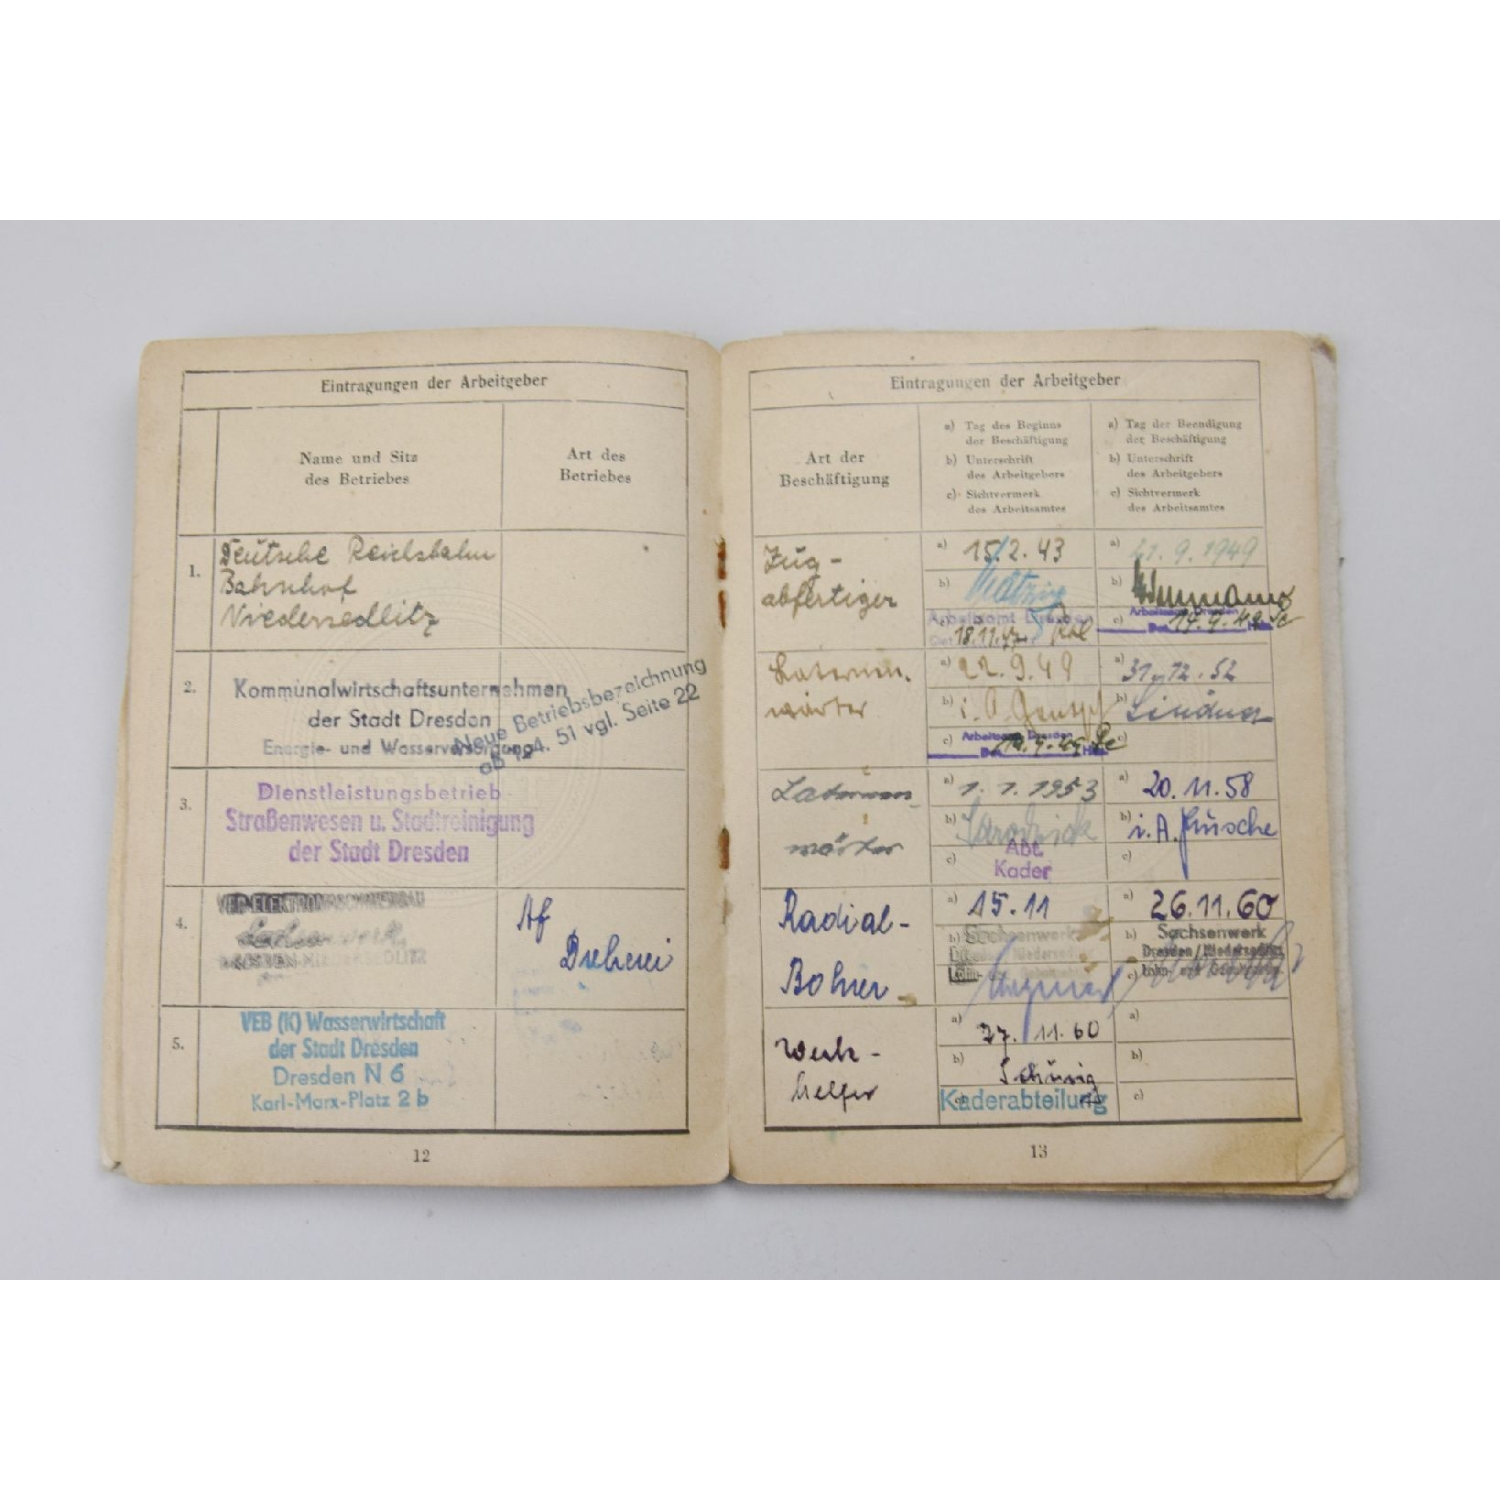 Eintragungen der Arbeitgeber
Name und Sitz
des Betriebes
Art des
Betriebes
1.
Deutsche Reichsbahn
Bahnhof
Niedersedlitz
2.
Kommunalwirtschaftsunternehmen
der Stadt Dresden
Energie- und Wasserversorgung
Neue Betriebsbezeichnung
ab 1.4. 51 vgl. Seite 22
3.
Dienstleistungsbetrieb
Straßenwesen u. Stadtreinigung
der Stadt Dresden
4.
VEB ELEKTROMASCHINENBAU
Sachsenwerk
DRESDEN-NIEDERSEDLITZ
Af
Dreherei
5.
VEB (K) Wasserwirtschaft
der Stadt Dresden
Dresden N 6
Karl-Marx-Platz 2 b
12
Eintragungen der Arbeitgeber
Art der
Beschäftigung
a) Tag des Beginns
der Beschäftigung
b) Unterschrift
des Arbeitgebers
c) Sichtvermerk
des Arbeitsamtes
a) Tag der Beendigung
der Beschäftigung
b) Unterschrift
des Arbeitgebers
c) Sichtvermerk
des Arbeitsamtes
Zug-
abfertiger
a) 15/2. 43
b)
c) Arbeitsamt Dresden
18.11.47
a) 21. 9. 1949
b)
c) Arbeitsamt Dresden
Laternen-
wärter
a) 22. 9. 49
b) i. A.
c) Arbeitsamt Dresden
a) 31. 12. 52
b) Lindner
c)
Laternen-
wärter
a) 1. 1. 1953
b)
c) Abt.
Kader
a) 20. 11. 58
b) i. A.
c)
Radial-
Bohrer
a) 15. 11
b) Sachsenwerk
a) 26. 11. 60
b) Sachsenwerk
Dresden / Niedersedlitz
c)
Werk-
helfer
a) 27. 11. 60
b)
c) Kaderabteilung
a)
b)
c)
13